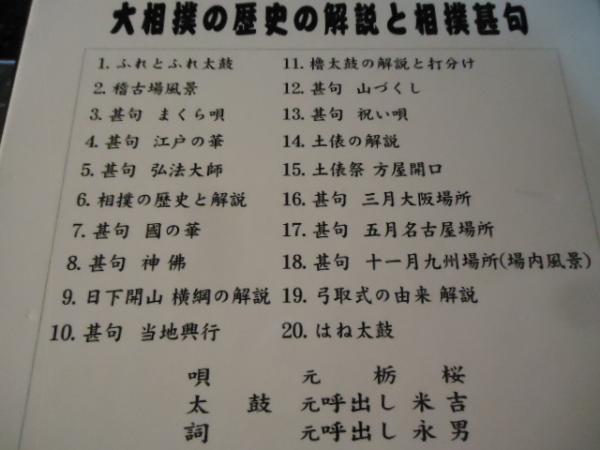 大相撲の歴史の解説と相撲甚句
1. ふれとふれ太鼓
2. 稽古場風景
3. 甚句 まくら唄
4. 甚句 江戸の華
5. 甚句 弘法大師
6. 相撲の歴史と解説
7. 甚句 國の華
8. 甚句 神佛
9. 日下開山 横綱の解説
10. 甚句 当地興行
11. 櫓太鼓の解説と打分け
12. 甚句 山づくし
13. 甚句 祝い唄
14. 土俵の解説
15. 土俵祭 方屋開口
16. 甚句 三月大阪場所
17. 甚句 五月名古屋場所
18. 甚句 十一月九州場所(場内風景)
19. 弓取式の由来 解説
20. はね太鼓
唄 元 栃桜
太鼓 元呼出し 米吉
詞 元呼出し 永男